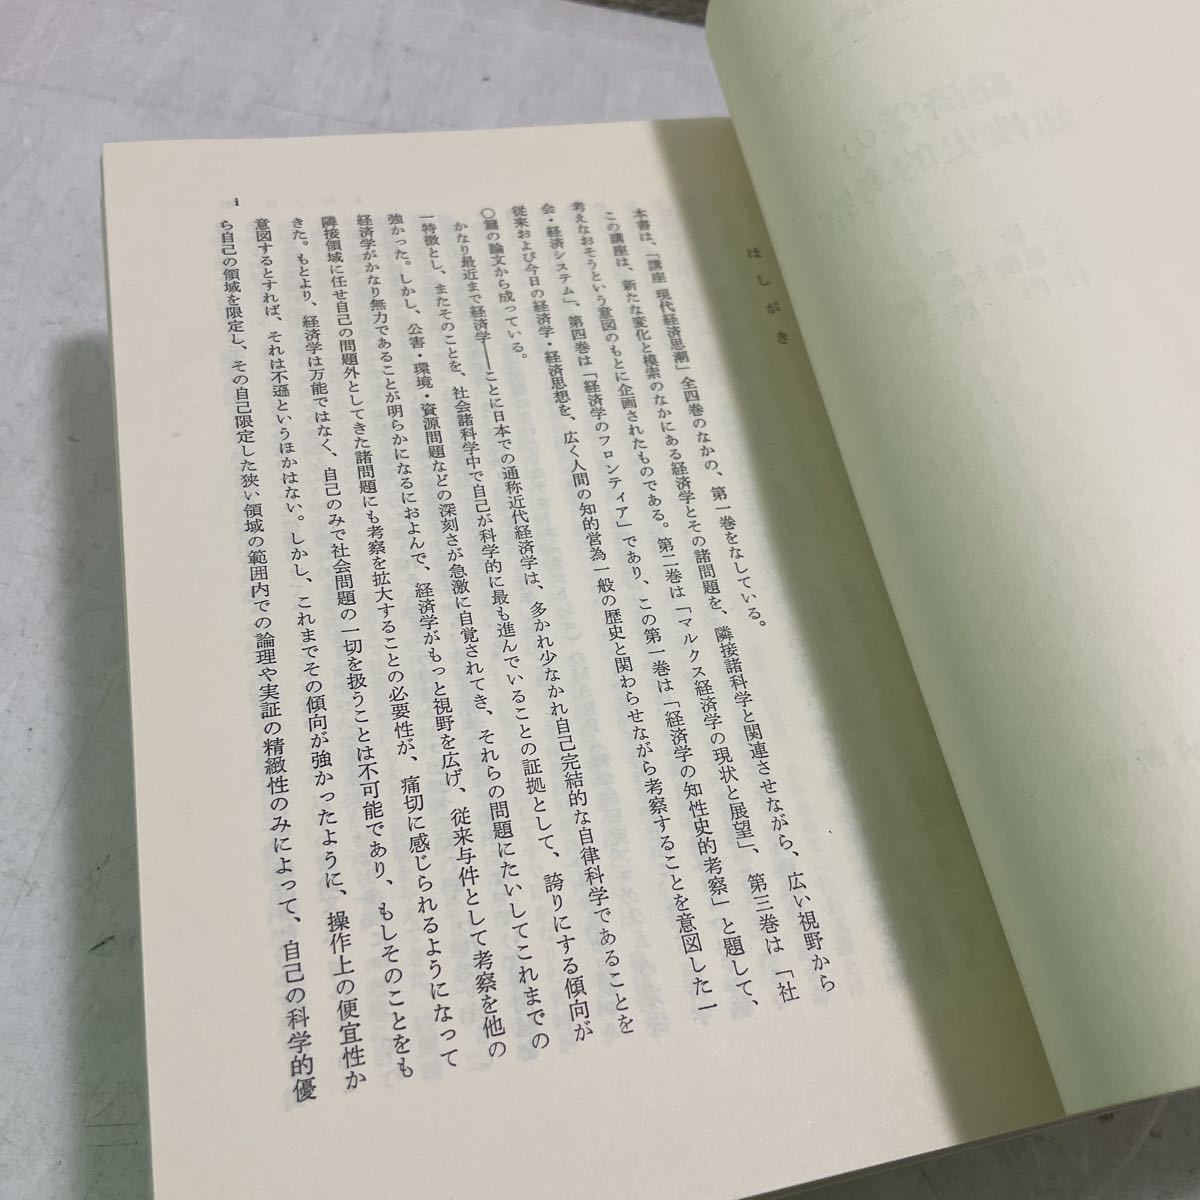 はしがき
本書は、「講座 現代経済思潮」全四巻のなかの、第一巻をなしている。
この講座は、新たな変化と模索のなかにある経済学とその諸問題を、隣接諸科学と関連させながら、広い視野から
考えなおそうという意図のもとに企画されたものである。第二巻は「マルクス経済学の現状と展望」、第三巻は「社
会・経済システム」、第四巻は「経済学のフロンティア」であり、この第一巻は「経済学の知性史的考察」と題して、
従来および今日の経済学・経済思想を、広く人間の知的営為一般の歴史と関わらせながら考察することを意図した一
〇篇の論文から成っている。
かなり最近まで経済学――ことに日本での通称近代経済学は、多かれ少なかれ自己完結的な自律科学であることを
一特徴とし、またそのことを、社会諸科学中で自己が科学的に最も進んでいることの証拠として、誇りにする傾向が
強かった。しかし、公害・環境・資源問題などの深刻さが急激に自覚されてき、それらの問題にたいしてこれまでの
経済学がかなり無力であることが明らかになるにおよんで、経済学がもっと視野を広げ、従来与件として考察を他の
隣接領域に任せ自己の問題外としてきた諸問題にも考察を拡大することの必要性が、痛切に感じられるようになって
きた。もとより、経済学は万能ではなく、自己のみで社会問題の一切を扱うことは不可能であり、もしそのことをも
意図するとすれば、それは不遜というほかはない。しかし、これまでその傾向が強かったように、操作上の便宜性か
ら自己の領域を限定し、その自己限定した狭い領域の範囲内での論理や実証の精緻性のみによって、自己の科学的優
i